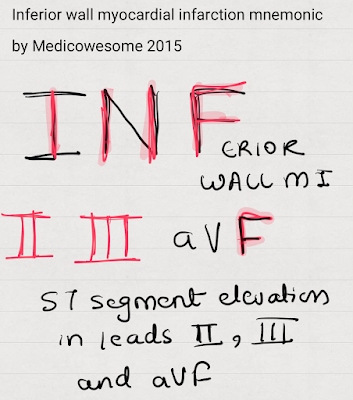 Inferior wall myocardial infarction mnemonic
by Medicowesome 2015
INFERIOR
WALL MI
II III aVF
ST segment elevation
in leads II, III
and aVF